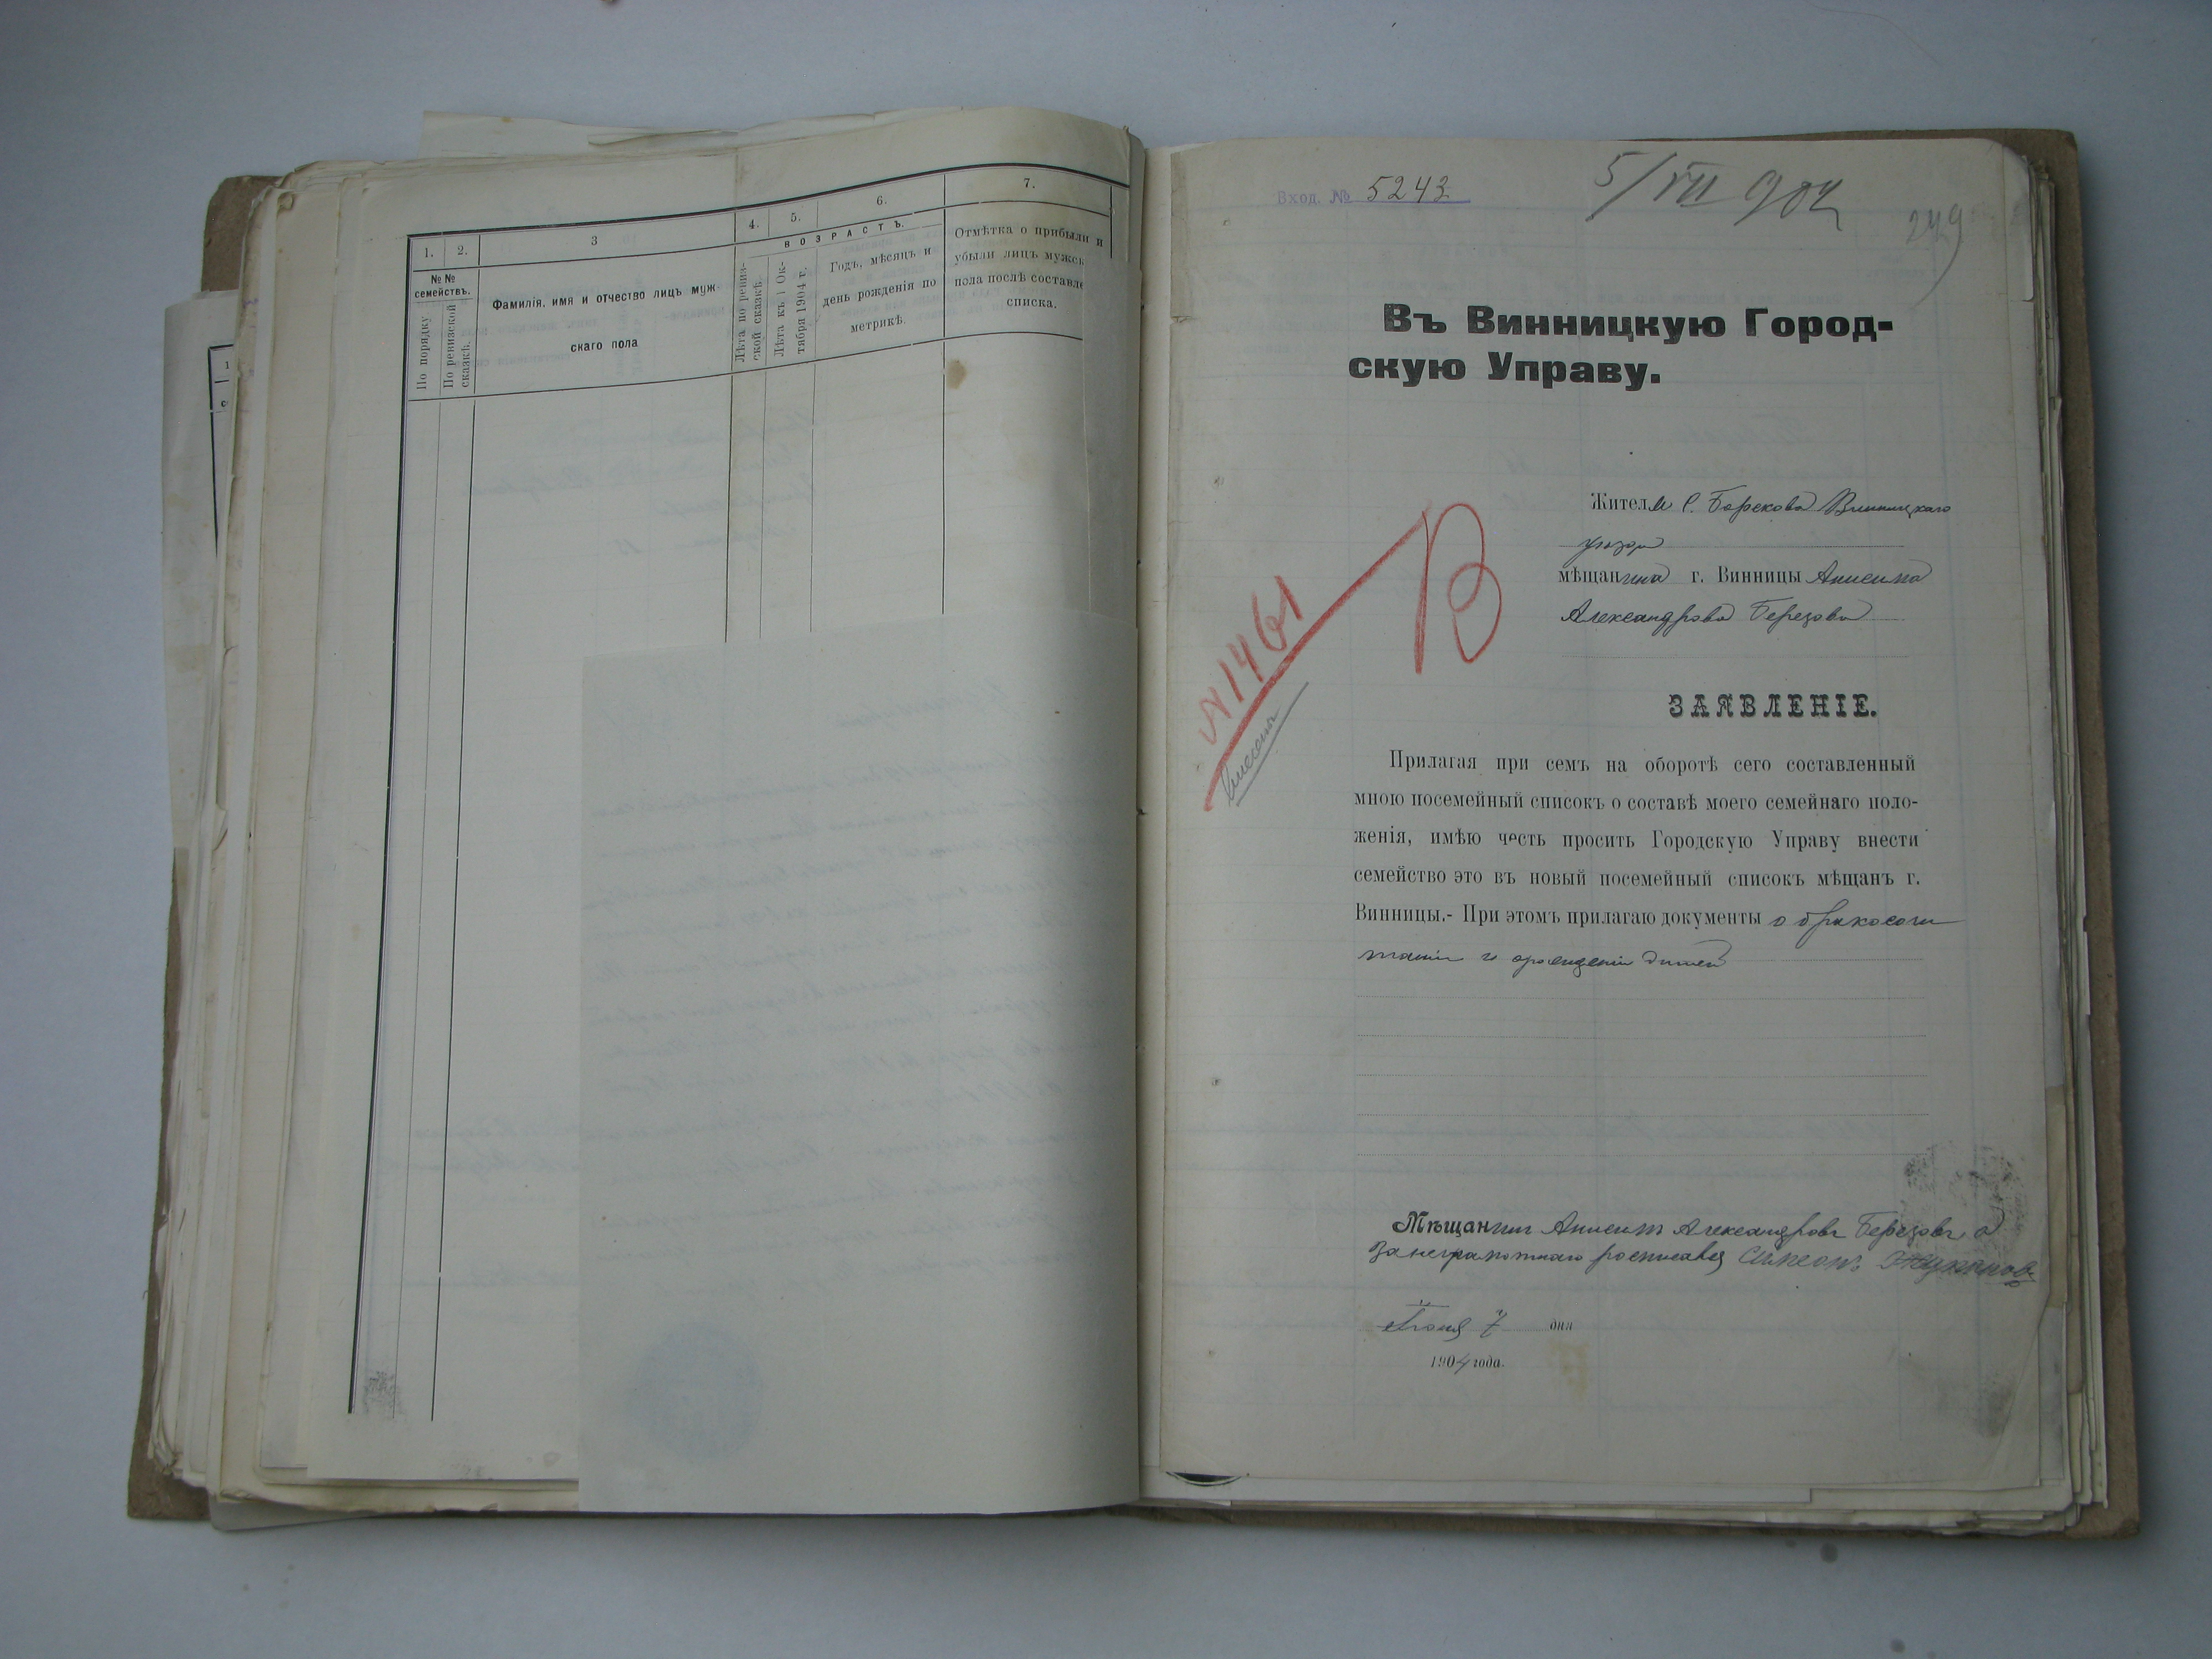 1.
2.
3
4.
5.
6.
7.
№№ семействъ.
По порядку
По ревизской сказкѣ.
Фамилія, имя и отчество лицъ муж-
скаго пола
ВОЗРАСТЪ.
Лѣта по ревиз-
ской сказкѣ.
Лѣта къ 1 Ок-
тября 1904 г.
Годъ, мѣсяцъ и
день рожденія по
метрикѣ.
Отмѣтка о прибыли и
убыли лицъ мужск
пола послѣ составле
списка.
Вход. № 5243
5/VII 904
249
Въ Винницкую Город-
скую Управу.
Жителя с. Борскова Винницкаго
уѣзда
мѣщанина г. Винницы Анисима
Александрова Березова
В
№1461
внесены
ЗАЯВЛЕНІЕ.
Прилагая при семъ на оборотѣ сего составленный
мною посемейный списокъ о составѣ моего семейнаго поло-
женія, имѣю честь просить Городскую Управу внести
семейство это въ новый посемейный списокъ мѣщанъ г.
Винницы.- При этомъ прилагаю документы о бракосоче
таніи и рожденіи дѣтей
Мѣщанинъ Анисимъ Александровъ Березовъ а
за неграмотнаго росписався Симеонъ
Іюня 7 дня
1904 года.